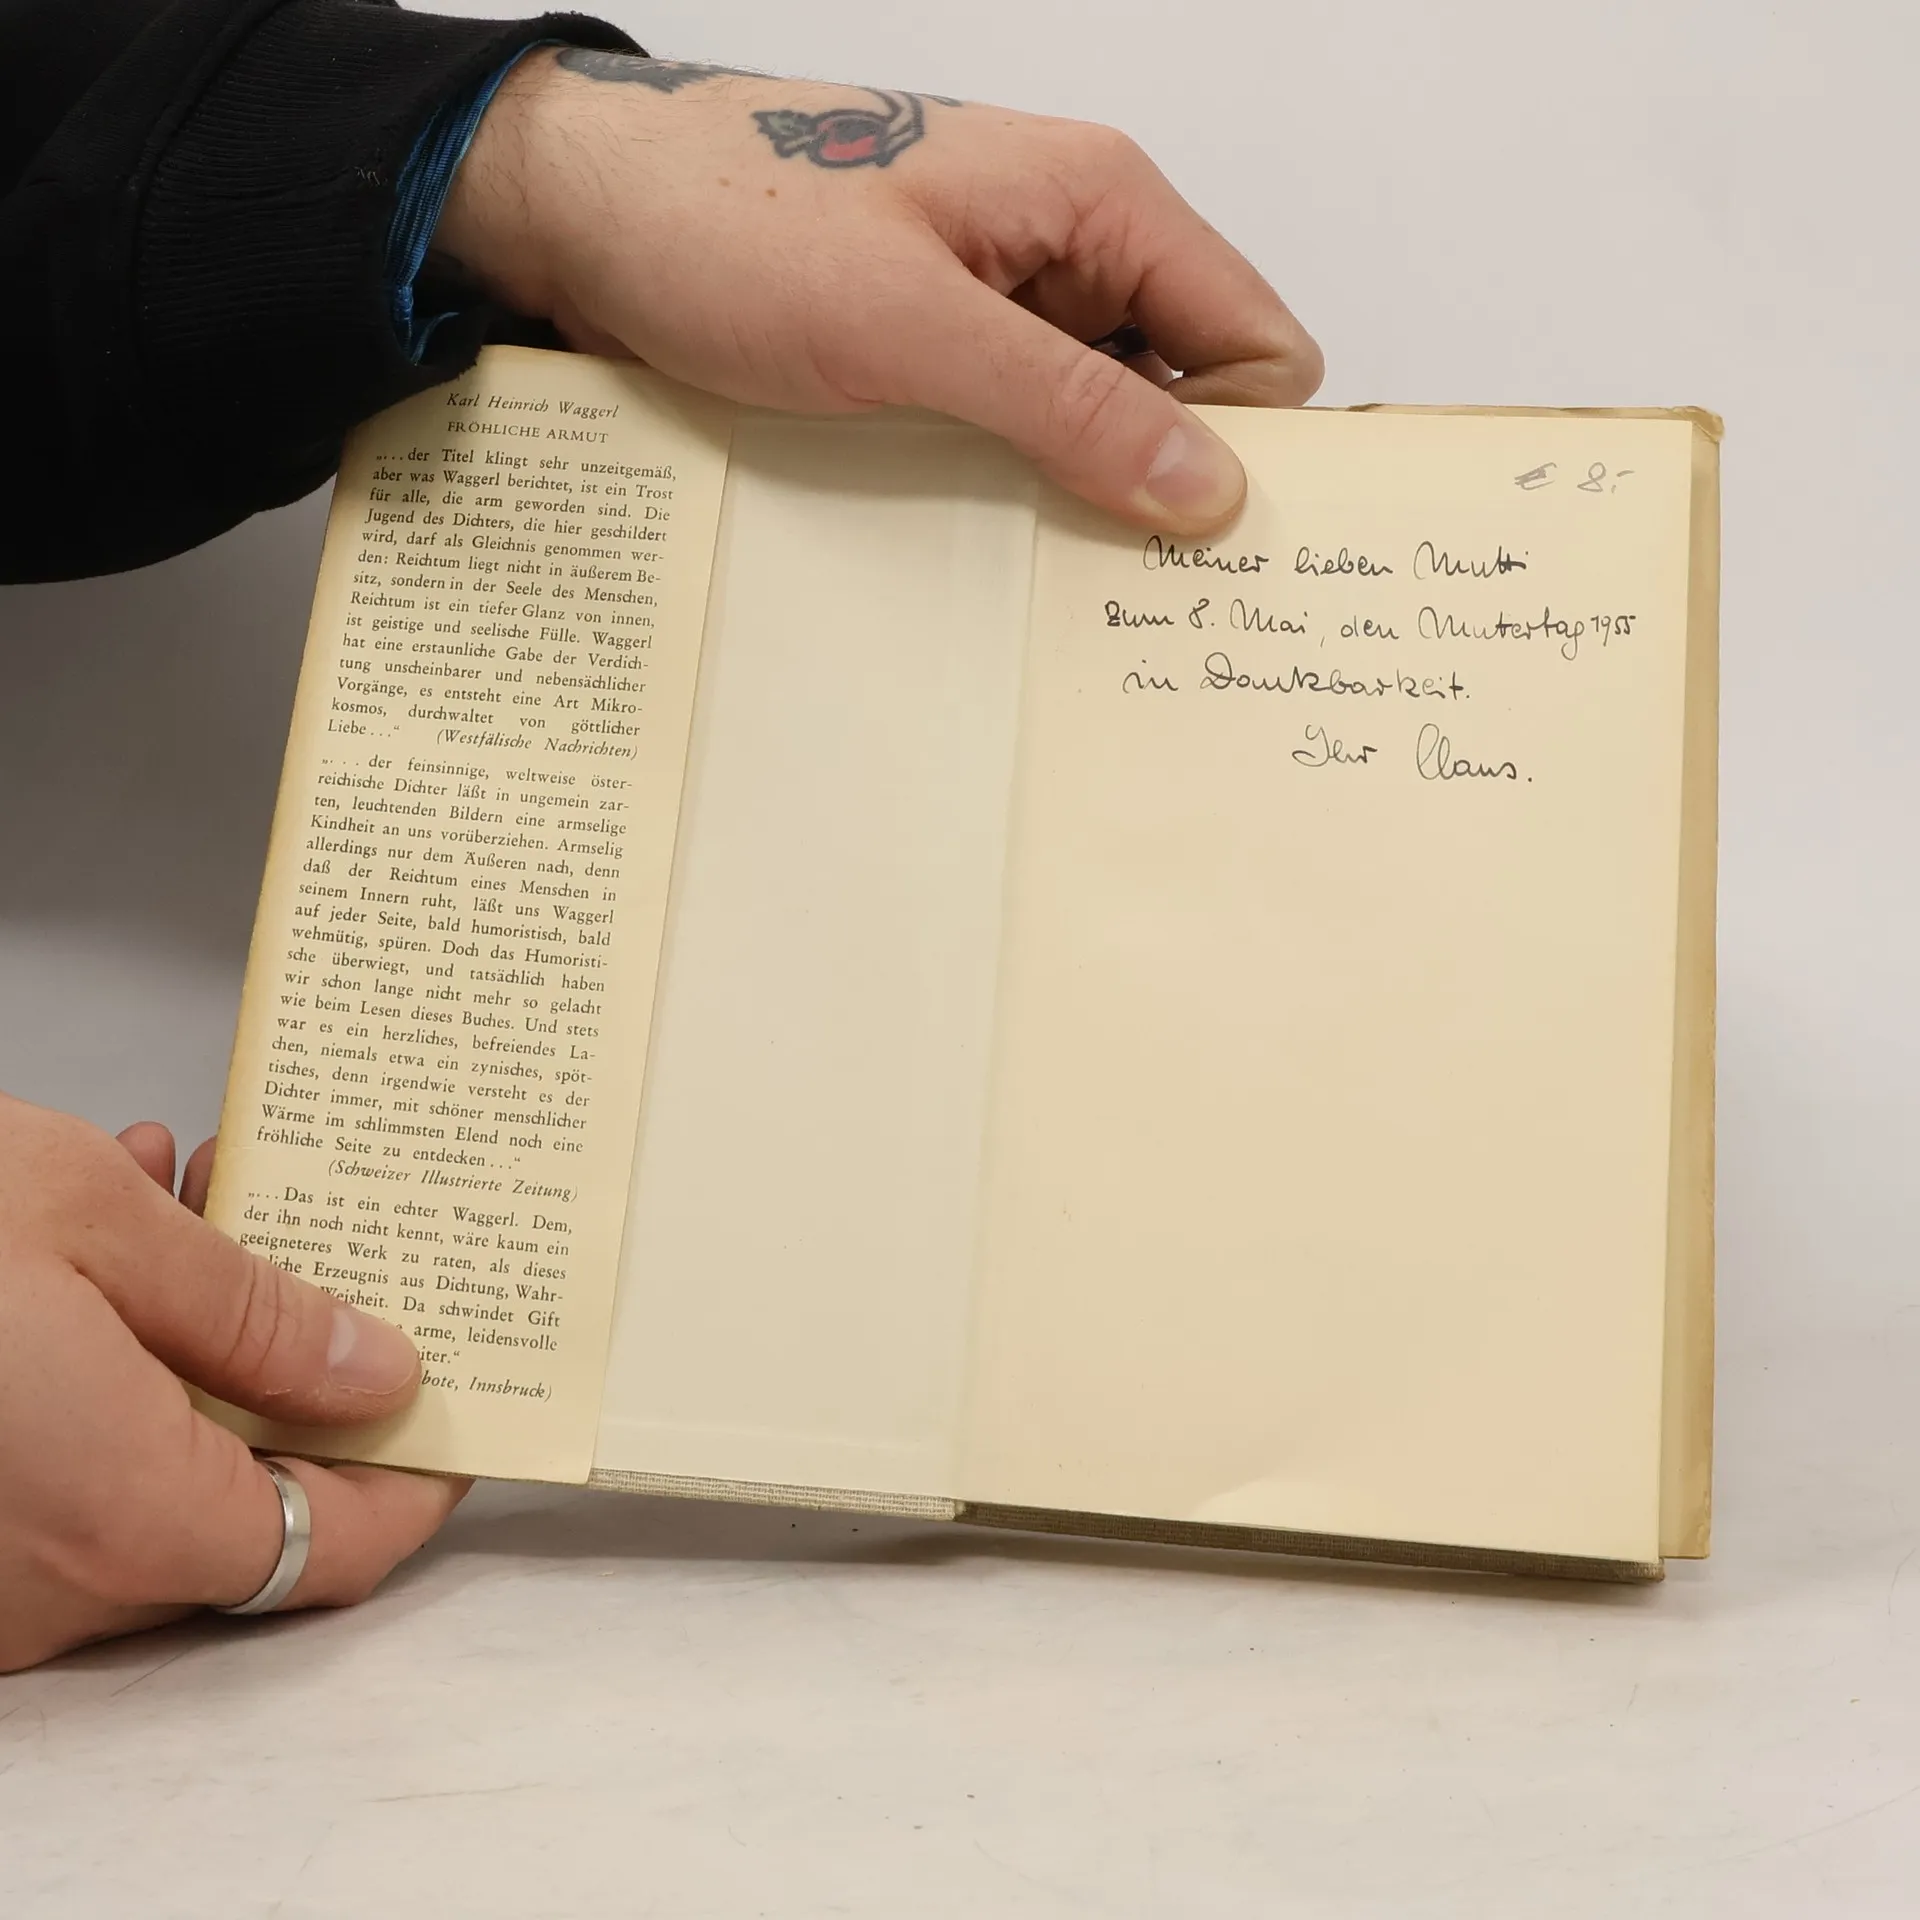 Karl Heinrich Waggerl
FRÖHLICHE ARMUT
„...der Titel klingt sehr unzeitgemäß,
aber was Waggerl berichtet, ist ein Trost
für alle, die arm geworden sind. Die
Jugend des Dichters, die hier geschildert
wird, darf als Gleichnis genommen wer-
den: Reichtum liegt nicht in äußerem Be-
sitz, sondern in der Seele des Menschen,
Reichtum ist ein tiefer Glanz von innen,
ist geistige und seelische Fülle. Waggerl
hat eine erstaunliche Gabe der Verdich-
tung unscheinbarer und nebensächlicher
Vorgänge, es entsteht eine Art Mikro-
kosmos, durchwaltet von göttlicher
Liebe...“ (Westfälische Nachrichten)
„. . . der feinsinnige, weltweise öster-
reichische Dichter läßt in ungemein zar-
ten, leuchtenden Bildern eine armselige
Kindheit an uns vorüberziehen. Armselig
allerdings nur dem Äußeren nach, denn
daß der Reichtum eines Menschen in
seinem Innern ruht, läßt uns Waggerl
auf jeder Seite, bald humoristisch, bald
wehmütig, spüren. Doch das Humoristi-
sche überwiegt, und tatsächlich haben
wir schon lange nicht mehr so gelacht
wie beim Lesen dieses Buches. Und stets
war es ein herzliches, befreiendes La-
chen, niemals etwa ein zynisches, spöt-
tisches, denn irgendwie versteht es der
Dichter immer, mit schöner menschlicher
Wärme im schlimmsten Elend noch eine
fröhliche Seite zu entdecken...“
(Schweizer Illustrierte Zeitung)
„...Das ist ein echter Waggerl. Dem,
der ihn noch nicht kennt, wäre kaum ein
geeigneteres Werk zu raten, als dieses
Erzeugnis aus Dichtung, Wahr-
Weisheit. Da schwindet Gift
arme, leidensvolle
iter.“
bote, Innsbruck)
€ 8.-
Meiner lieben Mutti
zum 8. Mai, den Muttertag 1955
in Dankbarkeit.
Ihr Claus.